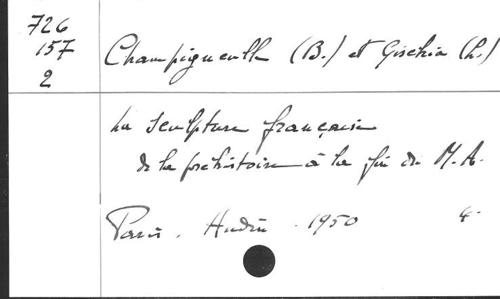 726
157
2
Champigneulle (B.) et Gischia (L.)
La sculpture française
de la préhistoire à la fin du M.A.
Paris. 1950 4°